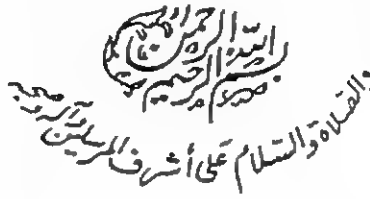 بسم الله الرحمن الرحيم
والصلاة والسلام على أشرف المرسلين وآله وصحبه